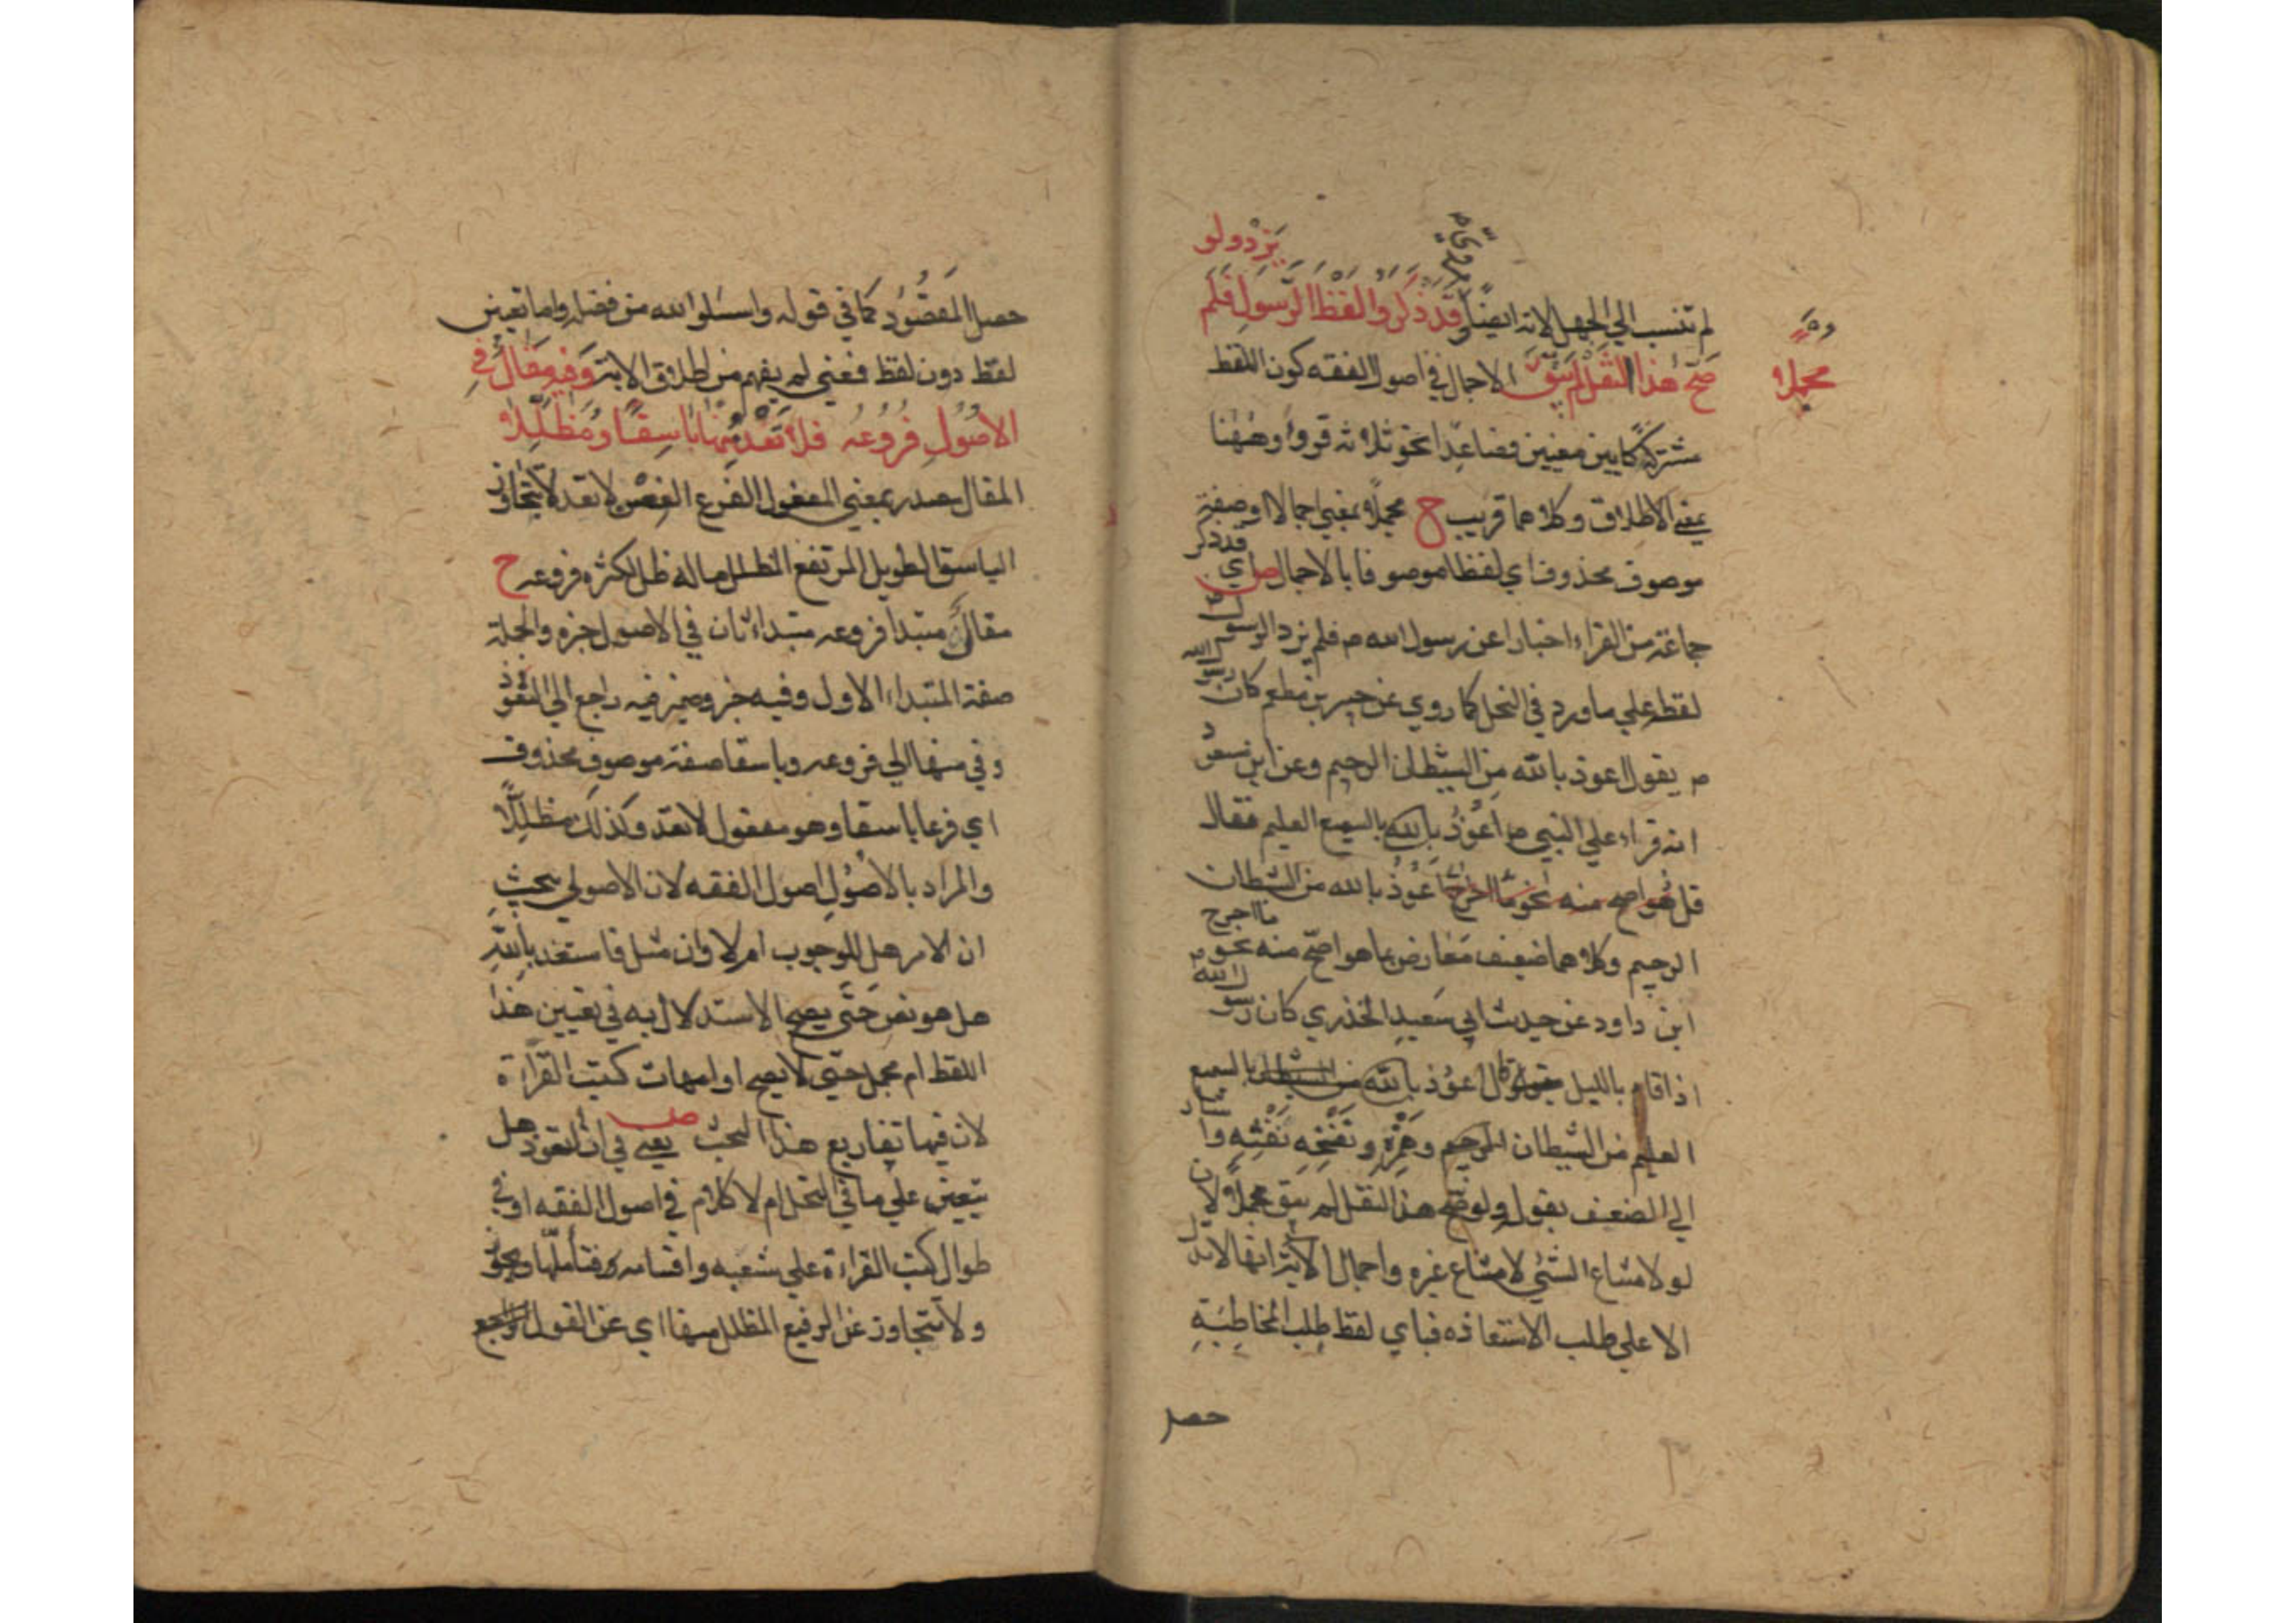 يزد ولو
لم تنسب الي الجهل لانه ايضا وقد ذكروا لفظ الرسول فلم
صح هذا النقل لم يبق
مجملا
الاجمال في اصول الفقه كون اللفظ
مشتركا بين معنيين فصاعدا نحو ثلاثه قروء وههنا
بمعني الاطلاق وكلاهما قريب ح مجملا بمعني اجمالا او صفة
موصوف محذوف اي لفظا موصوفا بالاجمال ص اي قد ذكر
جماعة من القراء اخبارا عن رسول الله م فلم يزد الرسول
لفظه علي ما ورد في النحل كما روي عن جبير بن مطعم كان رسول الله
م يقول اعوذ بالله من الشيطان الرجيم وعن ابن مسعود
انه قراء علي النبي م اعوذ بالله بالسميع العليم فقال
قل اعوذ بالله من الشطان
الرجيم وكلاهما ضعيف معارض بما هو اصح منه نحو ما اخرج
ابن داود عن حديث ابي سعيد الخذري كان رسول الله
اذا قام بالليل يقول اعوذ بالله بالسميع
العليم من الشيطان الرجيم وهمزه ونفخه نفثه واشار
الي الضعيف بقوله ولو صح هذا النقل لم يبق مجملا لان
لو لامتناع الشئي لامتناع غيره واجمال الاية انها لا تدل
الا علي طلب الاستعاذه فباي لفظ طلب المخاطبة
حصل
حصل المقصود كما في قوله واسئلوا الله من فضله واما تعيين
لفظ دون لفظ فمعني لم يفهم من اطلاق الاية وفيه مقال في
الاصول فروعه فلا تعد منها باسقا ومظللا
المقال مصدر بمعني المفعول الفرع الغصن لا تعد لا تتجاوز
الباسق الطويل المرتفع المظلل ما له ظل لكثره فروعه ح
مقال مبتدا فروعه مبتداء ثان في الاصول خبره والجملة
صفة المبتداء الاول وفيه خبر وضمير فيه راجع الي التعوذ
وفي منها الي فروعه وباسقا صفة موصوف محذوف
اي فرعا باسقا وهو مفعول لا تعد وكذلك مظللا
والمراد بالاصول اصول الفقه لان الاصولي يبحث
ان الامر هل للوجوب ام لا وان مثل فاستعذ بالله
هل هو نص حتي يصح الاستدلال به في تعيين هذا
اللفظ ام مجمل حتي لا يصح او امهات كتب القراءة
لان فيها تفاريع هذا البحث ص يعني في ان التعوذ هل
يتعين علي ما في النحل ام لا كلام في اصول الفقه او في
طوال كتب القراءة علي شعبه واقسامه فتأملها
ولا تتجاوز عن الرفيع المظلل منها اي عن القول